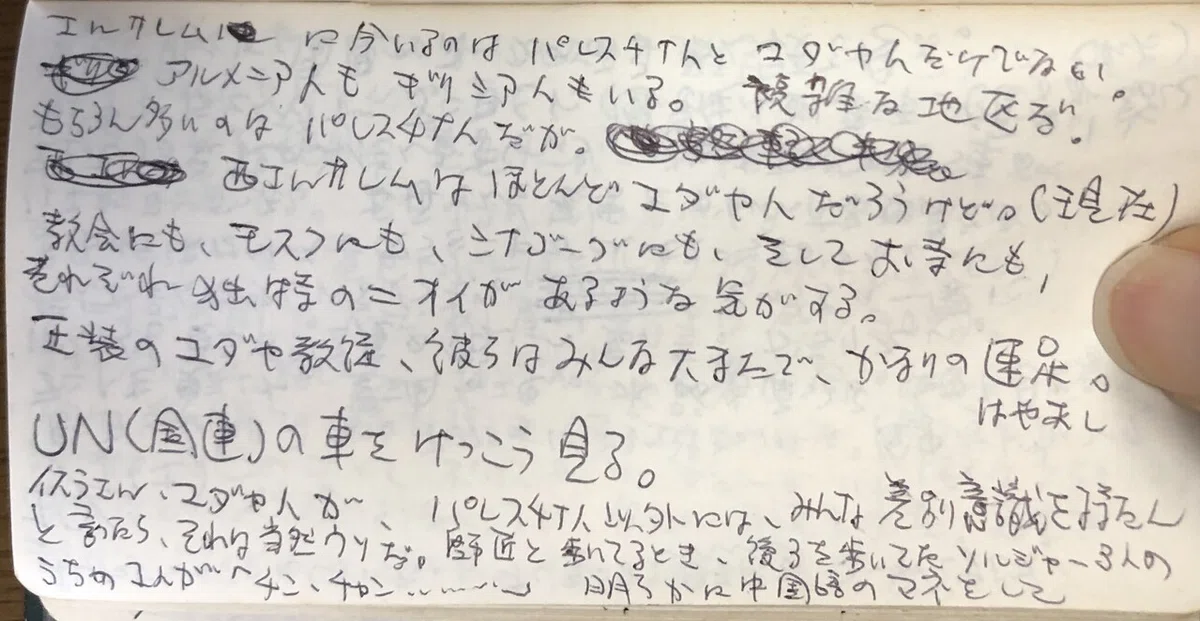 エルサレムに今いるのはパレスチナ人とユダヤ人だけでない。
アルメニア人もギリシア人もいる。複雑な地区だ。
もちろん多いのはパレスチナ人だが。
西エルサレムはほとんどユダヤ人だろうけど。(現在)
教会にも、モスクにも、シナゴーグにも、そしてお寺にも、
それぞれ独特のニオイがあるような気がする。
正装のユダヤ教徒、彼らはみんな大またで、かなりの速足。
はやあし
UN(国連)の車をけっこう見る。
イスラエル、ユダヤ人が、パレスチナ人以外には、みんな差別意識を持たん
と言ったら、それは当然ウソだ。師匠と歩いてるとき、後ろを歩いてたソルジャー3人の
うちの1人が「チン、チャン…………」明らかに中国語のマネをして